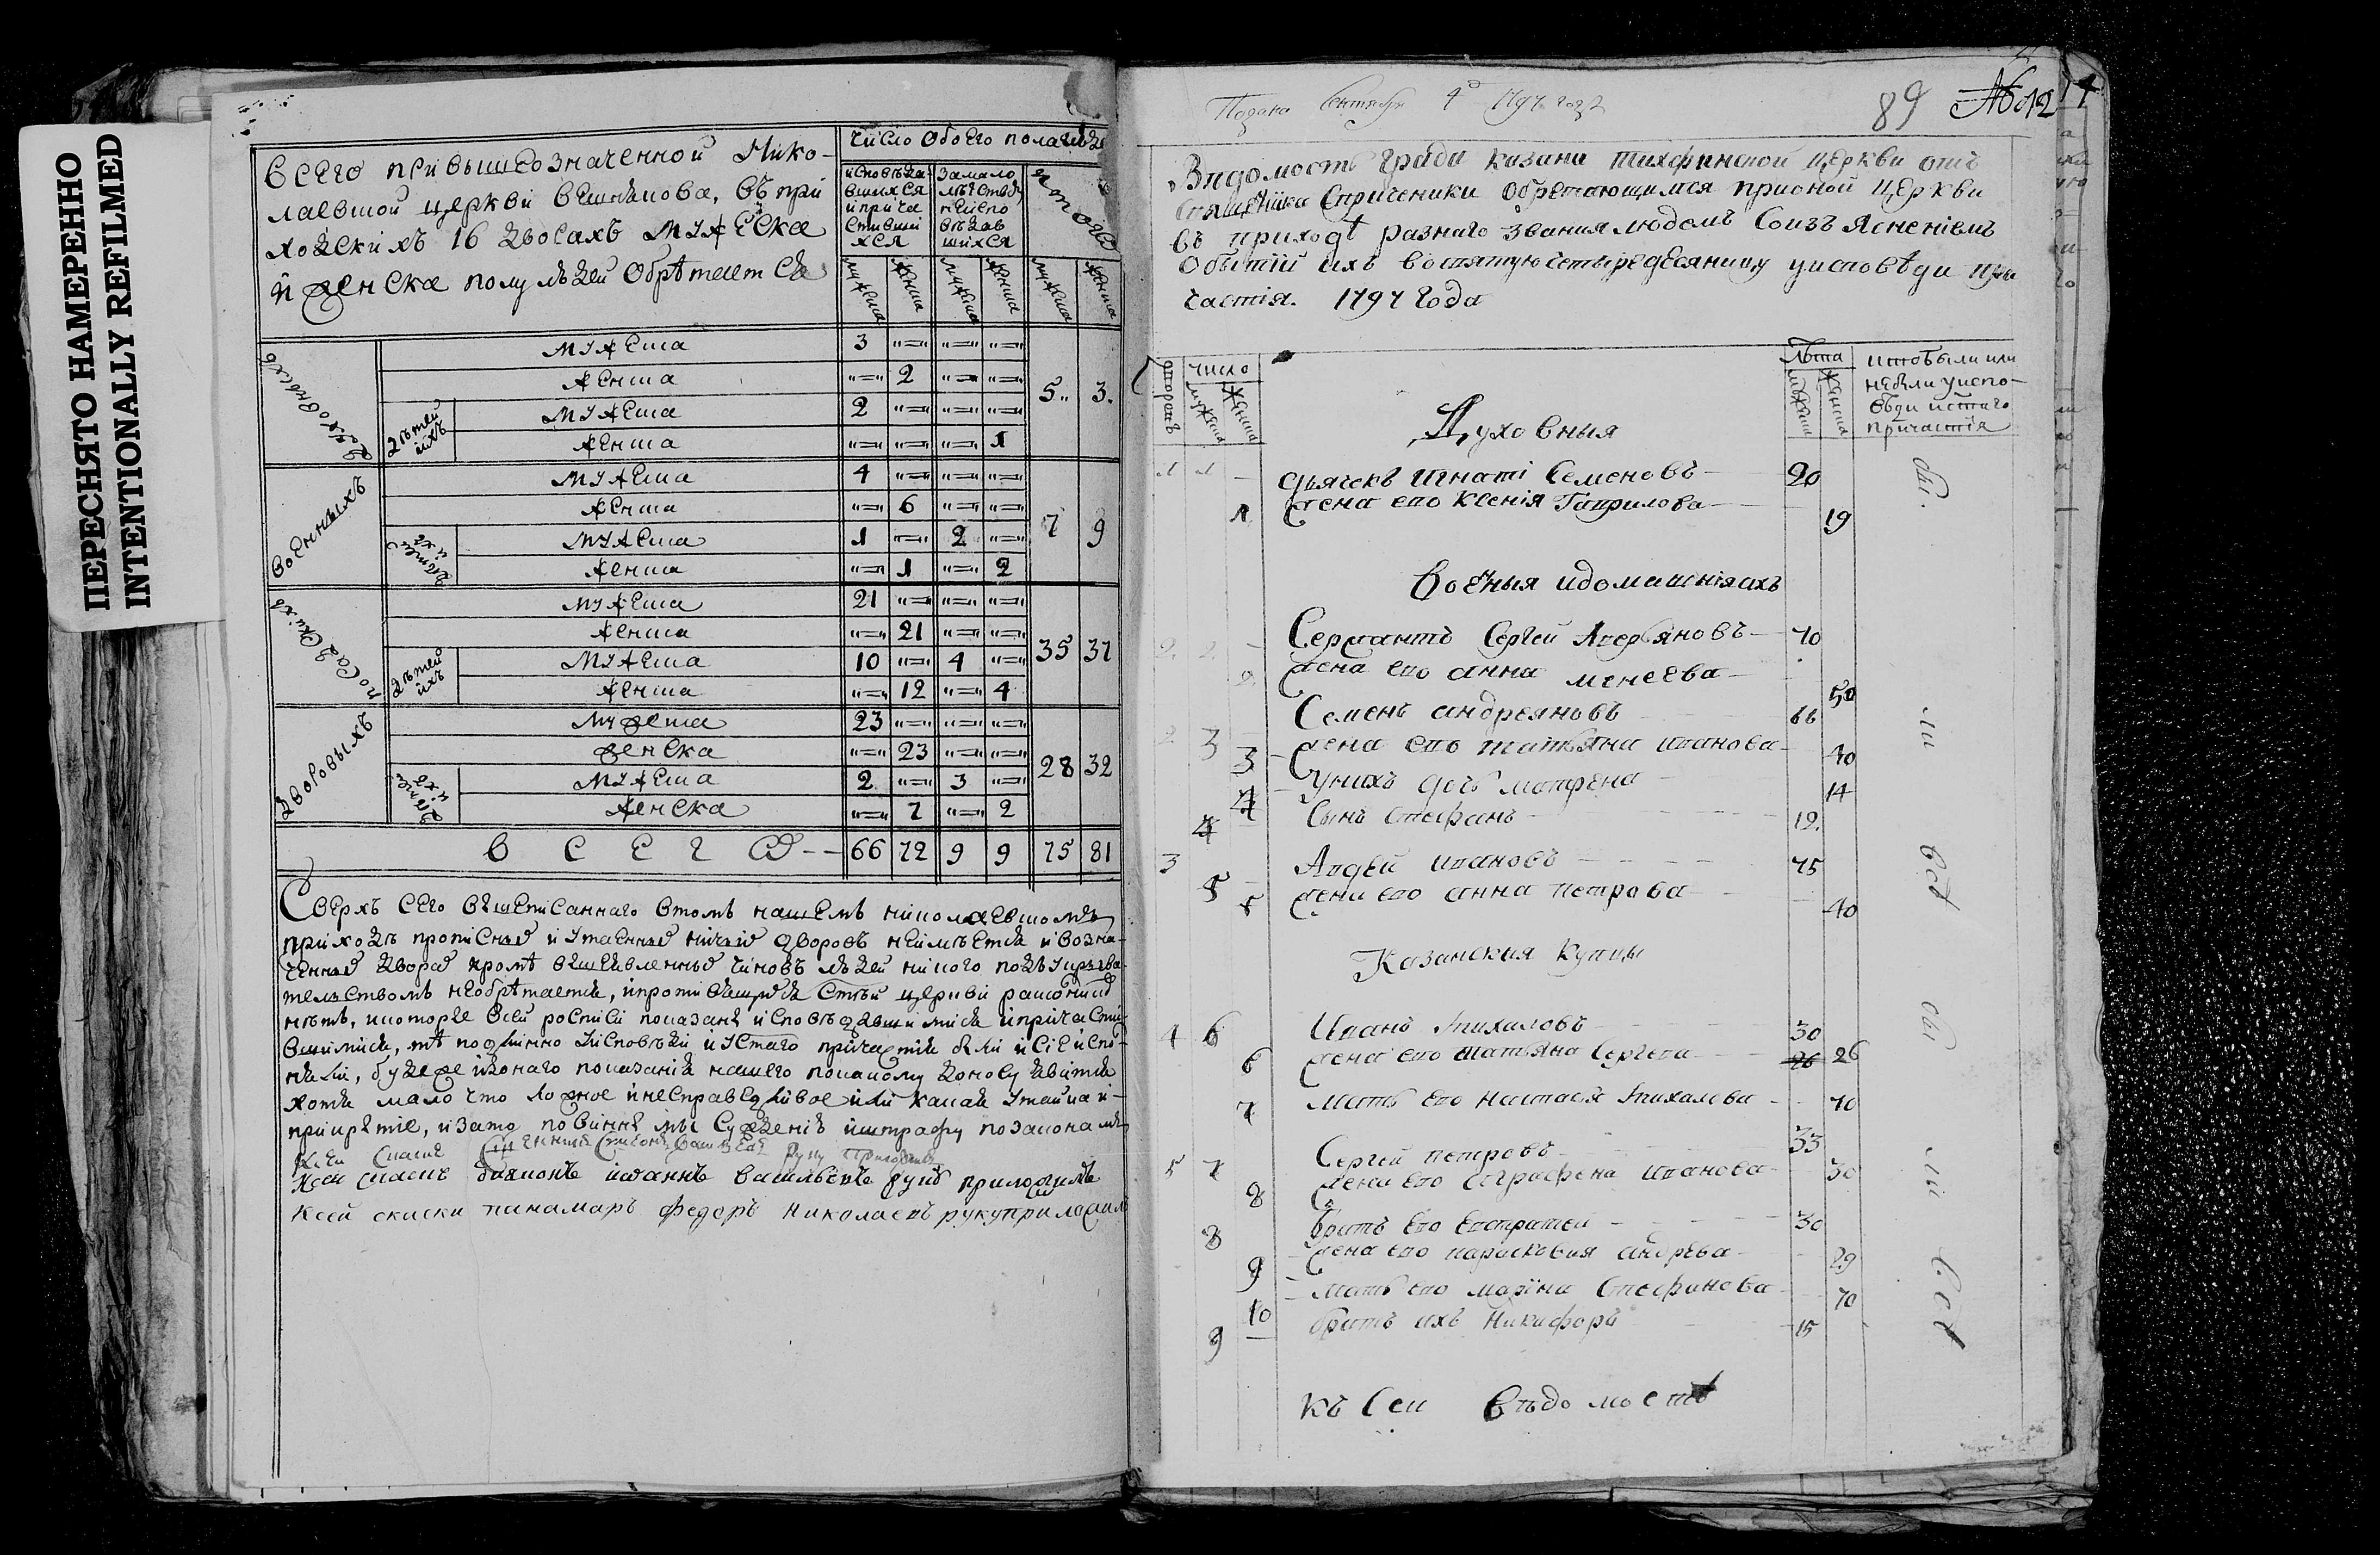 ПЕРЕСНЯТО НАМЕРЕННО
INTENTIONALLY REFILMED
Всего при вышеозначенной Нико-
лаевской церкви въ при
ходскихъ 16 дворахъ мужеска
и женска полу людей обрѣтается
число обоего пола людей
исповѣда-
вшихся
и прича
стивши
хся
за мало
лѣтствомъ
не испо
вѣдав
шихся
итого
мужеска женска мужеска женска мужеска женска
духовныхъ
мужеска 3
женска 2
дѣтей ихъ
мужеска 2
женска 1
5 3
военныхъ
мужеска 4
женска 6
дѣтей ихъ
мужеска 1 2
женска 1 2
7 9
посадскихъ
мужеска 21
женска 21
дѣтей ихъ
мужеска 10 4
женска 12 4
35 37
дворовыхъ
мужеска 23
женска 23
дѣтей ихъ
мужеска 2 3
женска 7 2
28 32
всего 66 72 9 9 75 81
Сверхъ сего вышеписаннаго в томъ нашемъ николаевскомъ
приходѣ прописныхъ и утаенныхъ дворовъ неимѣется и в озна-
ченныхъ дворахъ кромѣ вышеявленныхъ чиновъ людей никого подъ укрыва-
телствомъ необрѣтается, и противящихся стѣй церкви
нѣтъ, и которые в сей росписи показаны исповѣдавшимися и причасти-
вшимися, тѣ подлинно у исповѣди и у стаго причастия были и сіе испо-
няли, буде же из онаго показанія нашего по какому доносу явится
хотя мало что ложное и несправедливое или какая утайка и
прикрытіе, и за то повинны мы сужденію и штрафу по законамъ
Къ сей
Къ сей диаконъ Іоаннъ Васильевъ руку приложилъ
Къ сей скаски панамарь Федоръ Николаевъ руку приложилъ
Подана Сентября 4 1797 года
89 № 12
Вѣдомость града Казани Тихфинской церкви отъ
священника с причетники обретающимся при оной церкви
въ приходѣ разнаго звания людемъ со изъяснениемъ
о бытии ихъ во святую четыредесятницу у исповѣди и при
частія. 1797 года
дворовъ
число
мужеска женска
Лѣта
мужеска женска
кто были или
небыли у испо-
вѣди и стаго
причастія
Духовныя
1 1 дьячекъ Игнати Семеновъ 20
1 жена его Ксенія Гаврилова 19
Военыя и домашнія ихъ
2 2 Сержантъ Сергей Аверьяновъ 70
2 жена его Анна 50
2 3 Семенъ Андреяновъ 66
3 жена его Татьяна Иванова 40
4 у нихъ дочь Матрена 14
4 Сынъ Стефанъ 12
3 5 Авдѣй Ивановъ 75
5 жена его Анна Петрова 40
Казанския купцы
4 6 Иванъ Михаловъ 30
6 жена его Татьяна Сергѣева 26 26
7 мать его Настасья Михалова 70
5 7 Сергей Петровъ 33
8 жена его Евграфена Иванова 30
8 братъ его Евстратей 30
9 жена его Парасковия Андрѣева 29
10 мать его Марина Стефанова 70
9 братъ ихъ Никифоръ 15
бы
ли
всѣ
бы
ли
всѣ
къ сеи вѣдомостѣ